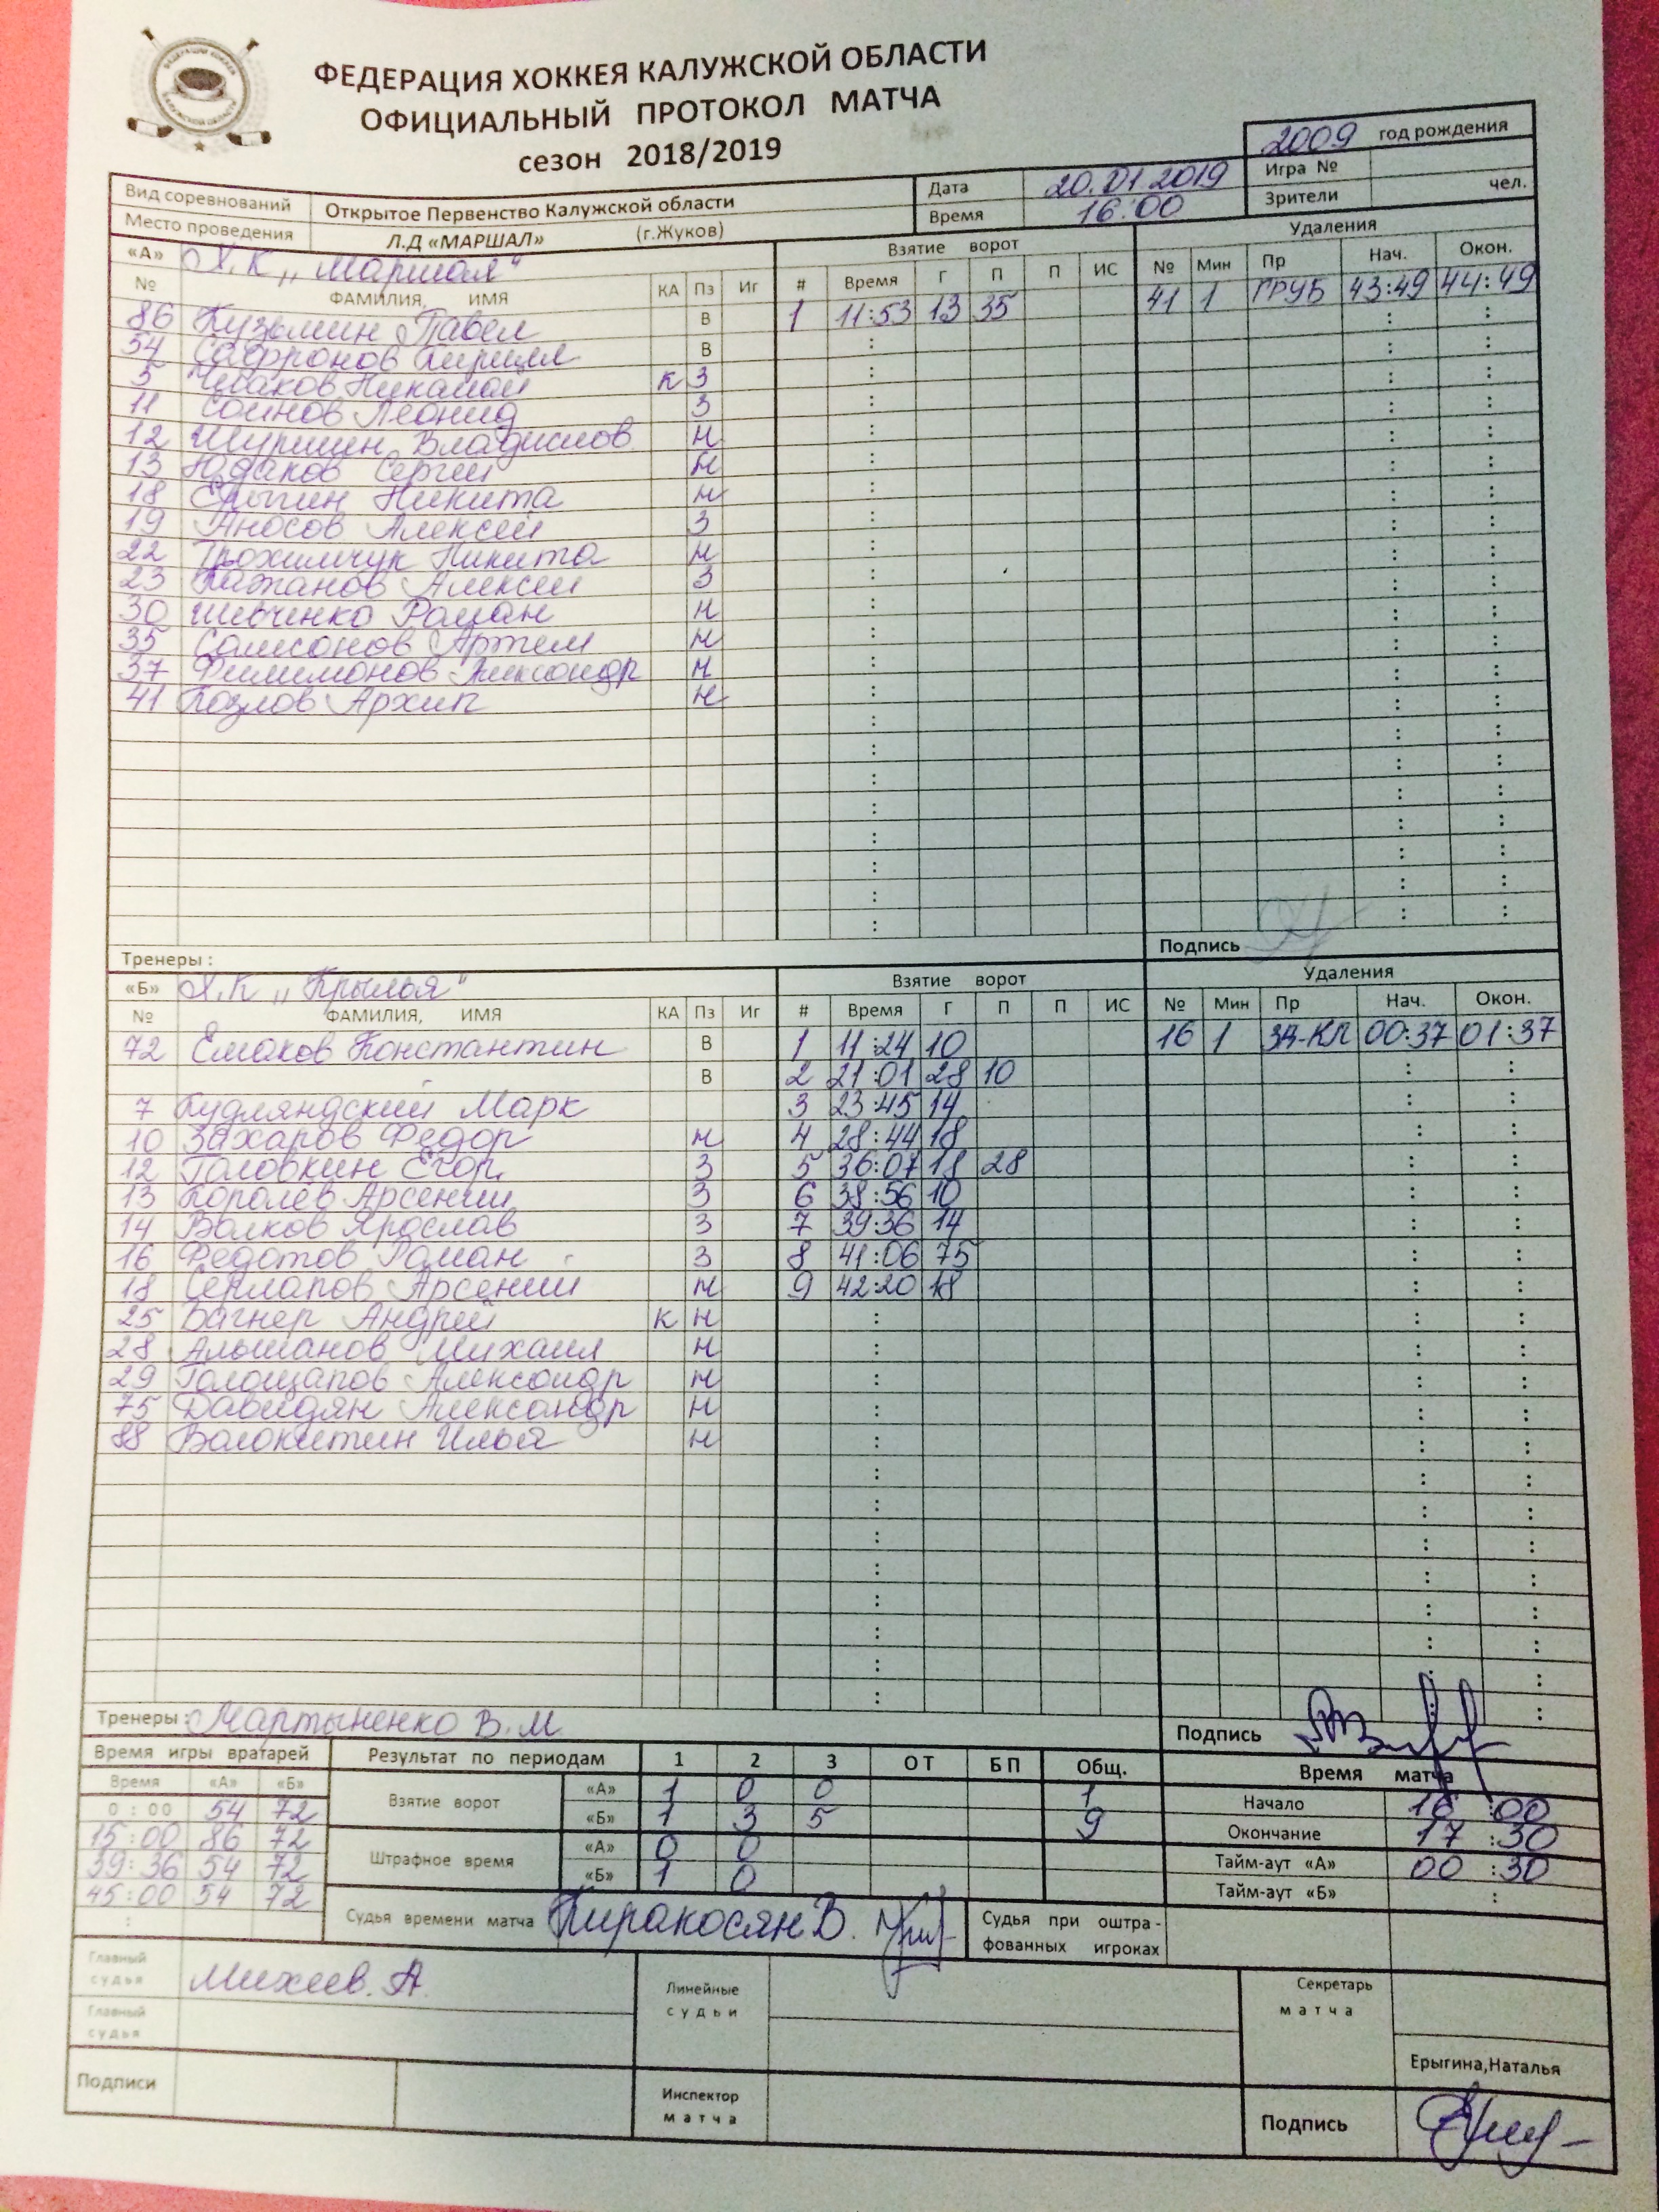 ФЕДЕРАЦИЯ ХОККЕЯ КАЛУЖСКОЙ ОБЛАСТИ
ОФИЦИАЛЬНЫЙ ПРОТОКОЛ МАТЧА
сезон 2018/2019
2009 год рождения
Вид соревнований Открытое Первенство Калужской области Дата 20.01.2019 Игра №
Место проведения Л.Д «МАРШАЛ» (г.Жуков) Время 16:00 Зрители чел.
«А» Х.К „Маршал“ Взятие ворот Удаления
№ ФАМИЛИЯ, ИМЯ КА Пз Иг # Время Г П П ИС № Мин Пр Нач. Окон.
86 Кузьмин Павел В 1 11:53 13 35 41 1 ГРУБ 43:49 44:49
54 Сафронов Кирилл В
5 Чибаков Николай К З
11 Соинов Леонид З
12 Шуршин Владислов Н
13 Юдаков Сергей Н
18 Ерыгин Никита Н
19 Аносов Алексей З
22 Трохимчук Никита Н
23 Катанов Алексей З
30 Шевченко Роман Н
35 Самсонов Артем Н
37 Филимонов Александр Н
41 Козлов Архип Н
Тренеры : Подпись
«Б» Х.К „Крылья“ Взятие ворот Удаления
№ ФАМИЛИЯ, ИМЯ КА Пз Иг # Время Г П П ИС № Мин Пр Нач. Окон.
72 Емаков Константин В 1 11:24 10 16 1 ЗД-КЛ 00:37 01:37
В 2 21:01 28 10
7 Кудляндский Марк 3 23:45 14
10 Захаров Федор Н 4 28:44 18
12 Головкин Егор З 5 36:07 18 28
13 Королев Арсений З 6 38:56 10
14 Волков Ярослав З 7 39:36 14
16 Федотов Роман З 8 41:06 75
18 Серлапов Арсений Н 9 42:20 18
25 Вагнер Андрей К Н
28 Альшанов Михаил Н
29 Голощапов Александр Н
75 Давидян Александр Н
88 Волокитин Илья Н
Тренеры : Мартыненко В.М Подпись
Время игры вратарей Результат по периодам 1 2 3 ОТ БП Общ. Время матча
Время «А» «Б» Взятие ворот «А» 1 0 0 1 Начало 16:00
0 : 00 54 72 «Б» 1 3 5 9 Окончание 17:30
15:00 86 72 Штрафное время «А» 0 0 Тайм-аут «А» 00:30
39:36 54 72 «Б» 1 0 Тайм-аут «Б» :
45:00 54 72
Судья времени матча Киракосян В. Судья при оштра-
фованных игроках
Главный судья Михеев.А. Линейные судьи Секретарь матча
Главный судья
Ерыгина,Наталья
Подписи Инспектор матча Подпись